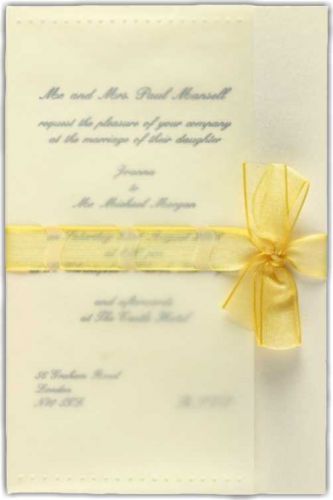 Mr. and Mrs. Paul Mansell
request the pleasure of your company
at the marriage of their daughter
Joanna
to
Mr Michael Morgan
on Saturday August
and afterwards
at The Castle Hotel
56 Graham Road
London